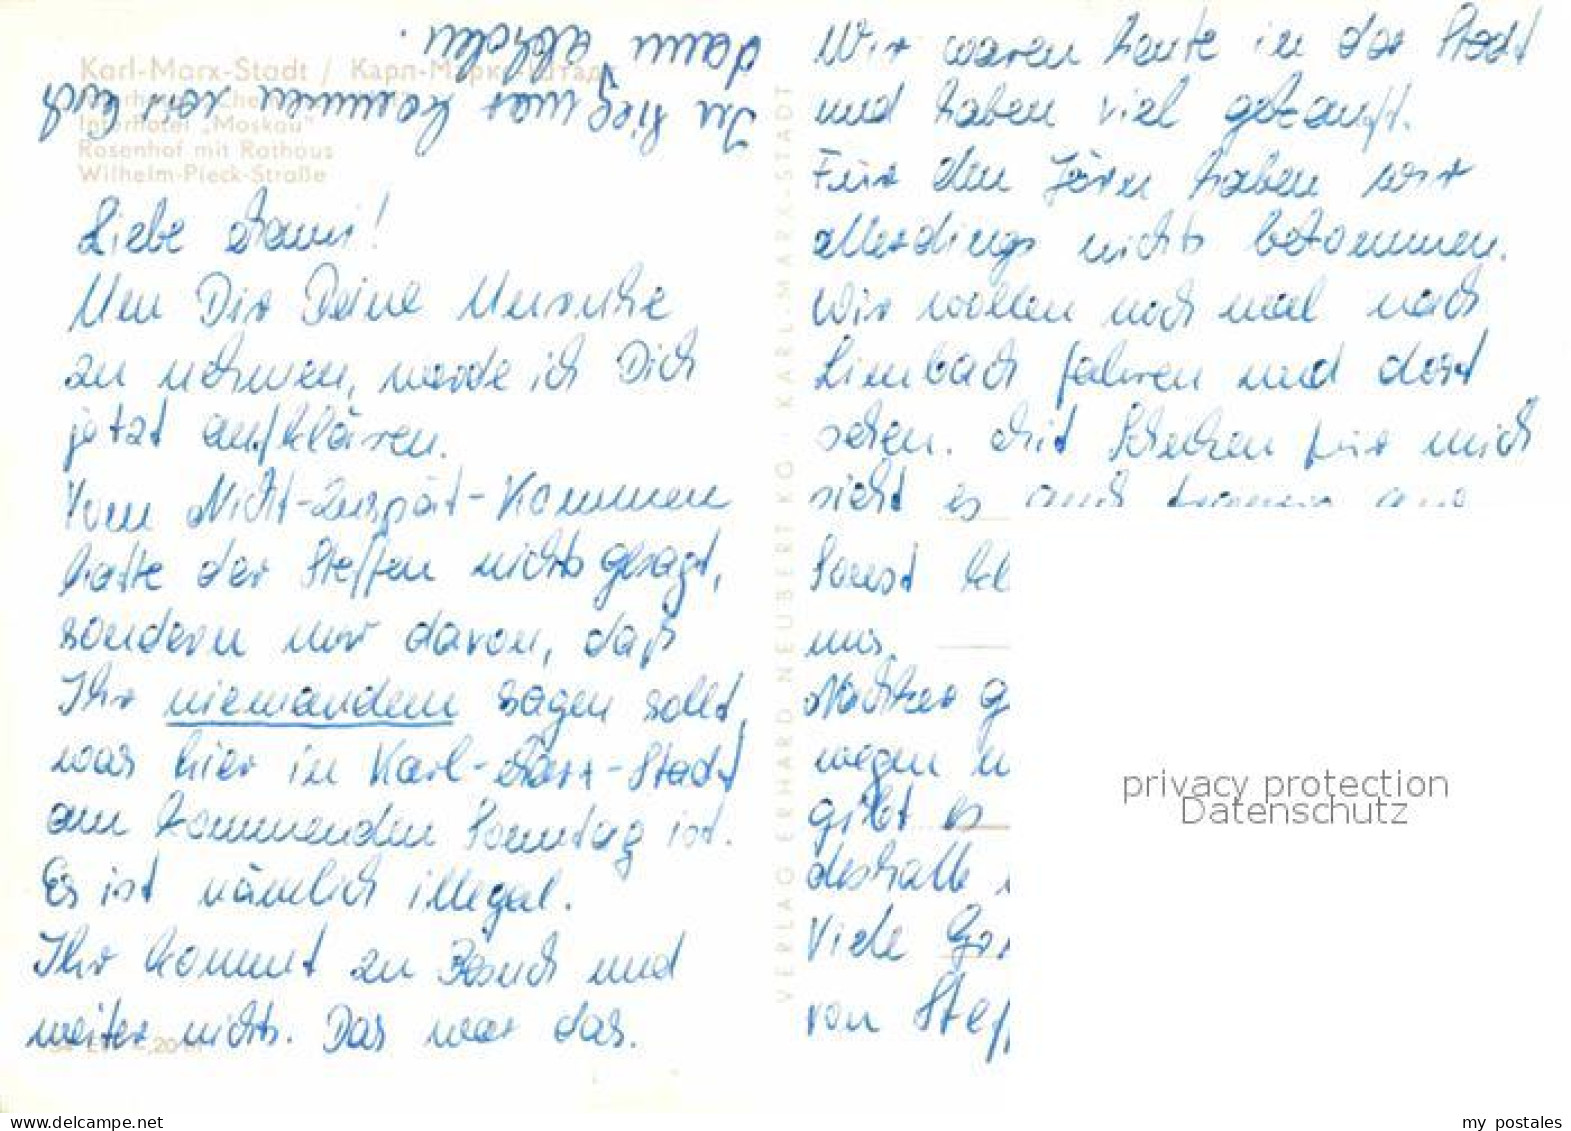 Karl-Marx-Stadt / Карл-Маркс-Штадт
Interhotel „Moskau“
Rosenhof mit Rathaus
Wilhelm-Pieck-Straße
Liebe Mami!
Um Dir Deine Unruhe
zu nehmen, werde ich Dich
jetzt aufklären.
Vom Nicht-Zuspät-Kommen
hatte der Steffen nichts gesagt,
sondern nur davon, daß
Ihr niemandem sagen sollt,
was hier in Karl-Marx-Stadt
am kommenden Sonntag ist.
Es ist nämlich illegal.
Ihr kommt zu Besuch und
weiter nichts. Das war das.
In Siegmar kommen wir Euch
dann abholen.
VERLAG ERHARD NEUBERT KG · KARL-MARX-STADT
Wir waren heute in der Stadt
und haben viel gekauft.
Für den Jörn haben wir
allerdings nichts bekommen.
Wir wollen noch mal nach
Limbach fahren und dort
sehen. Mit Schuhen für mich
sieht es auch traurig aus
Sonst
uns.
Nachher
wegen
gibt es
deshalb
Viele
von
privacy protection
Datenschutz
my_postales